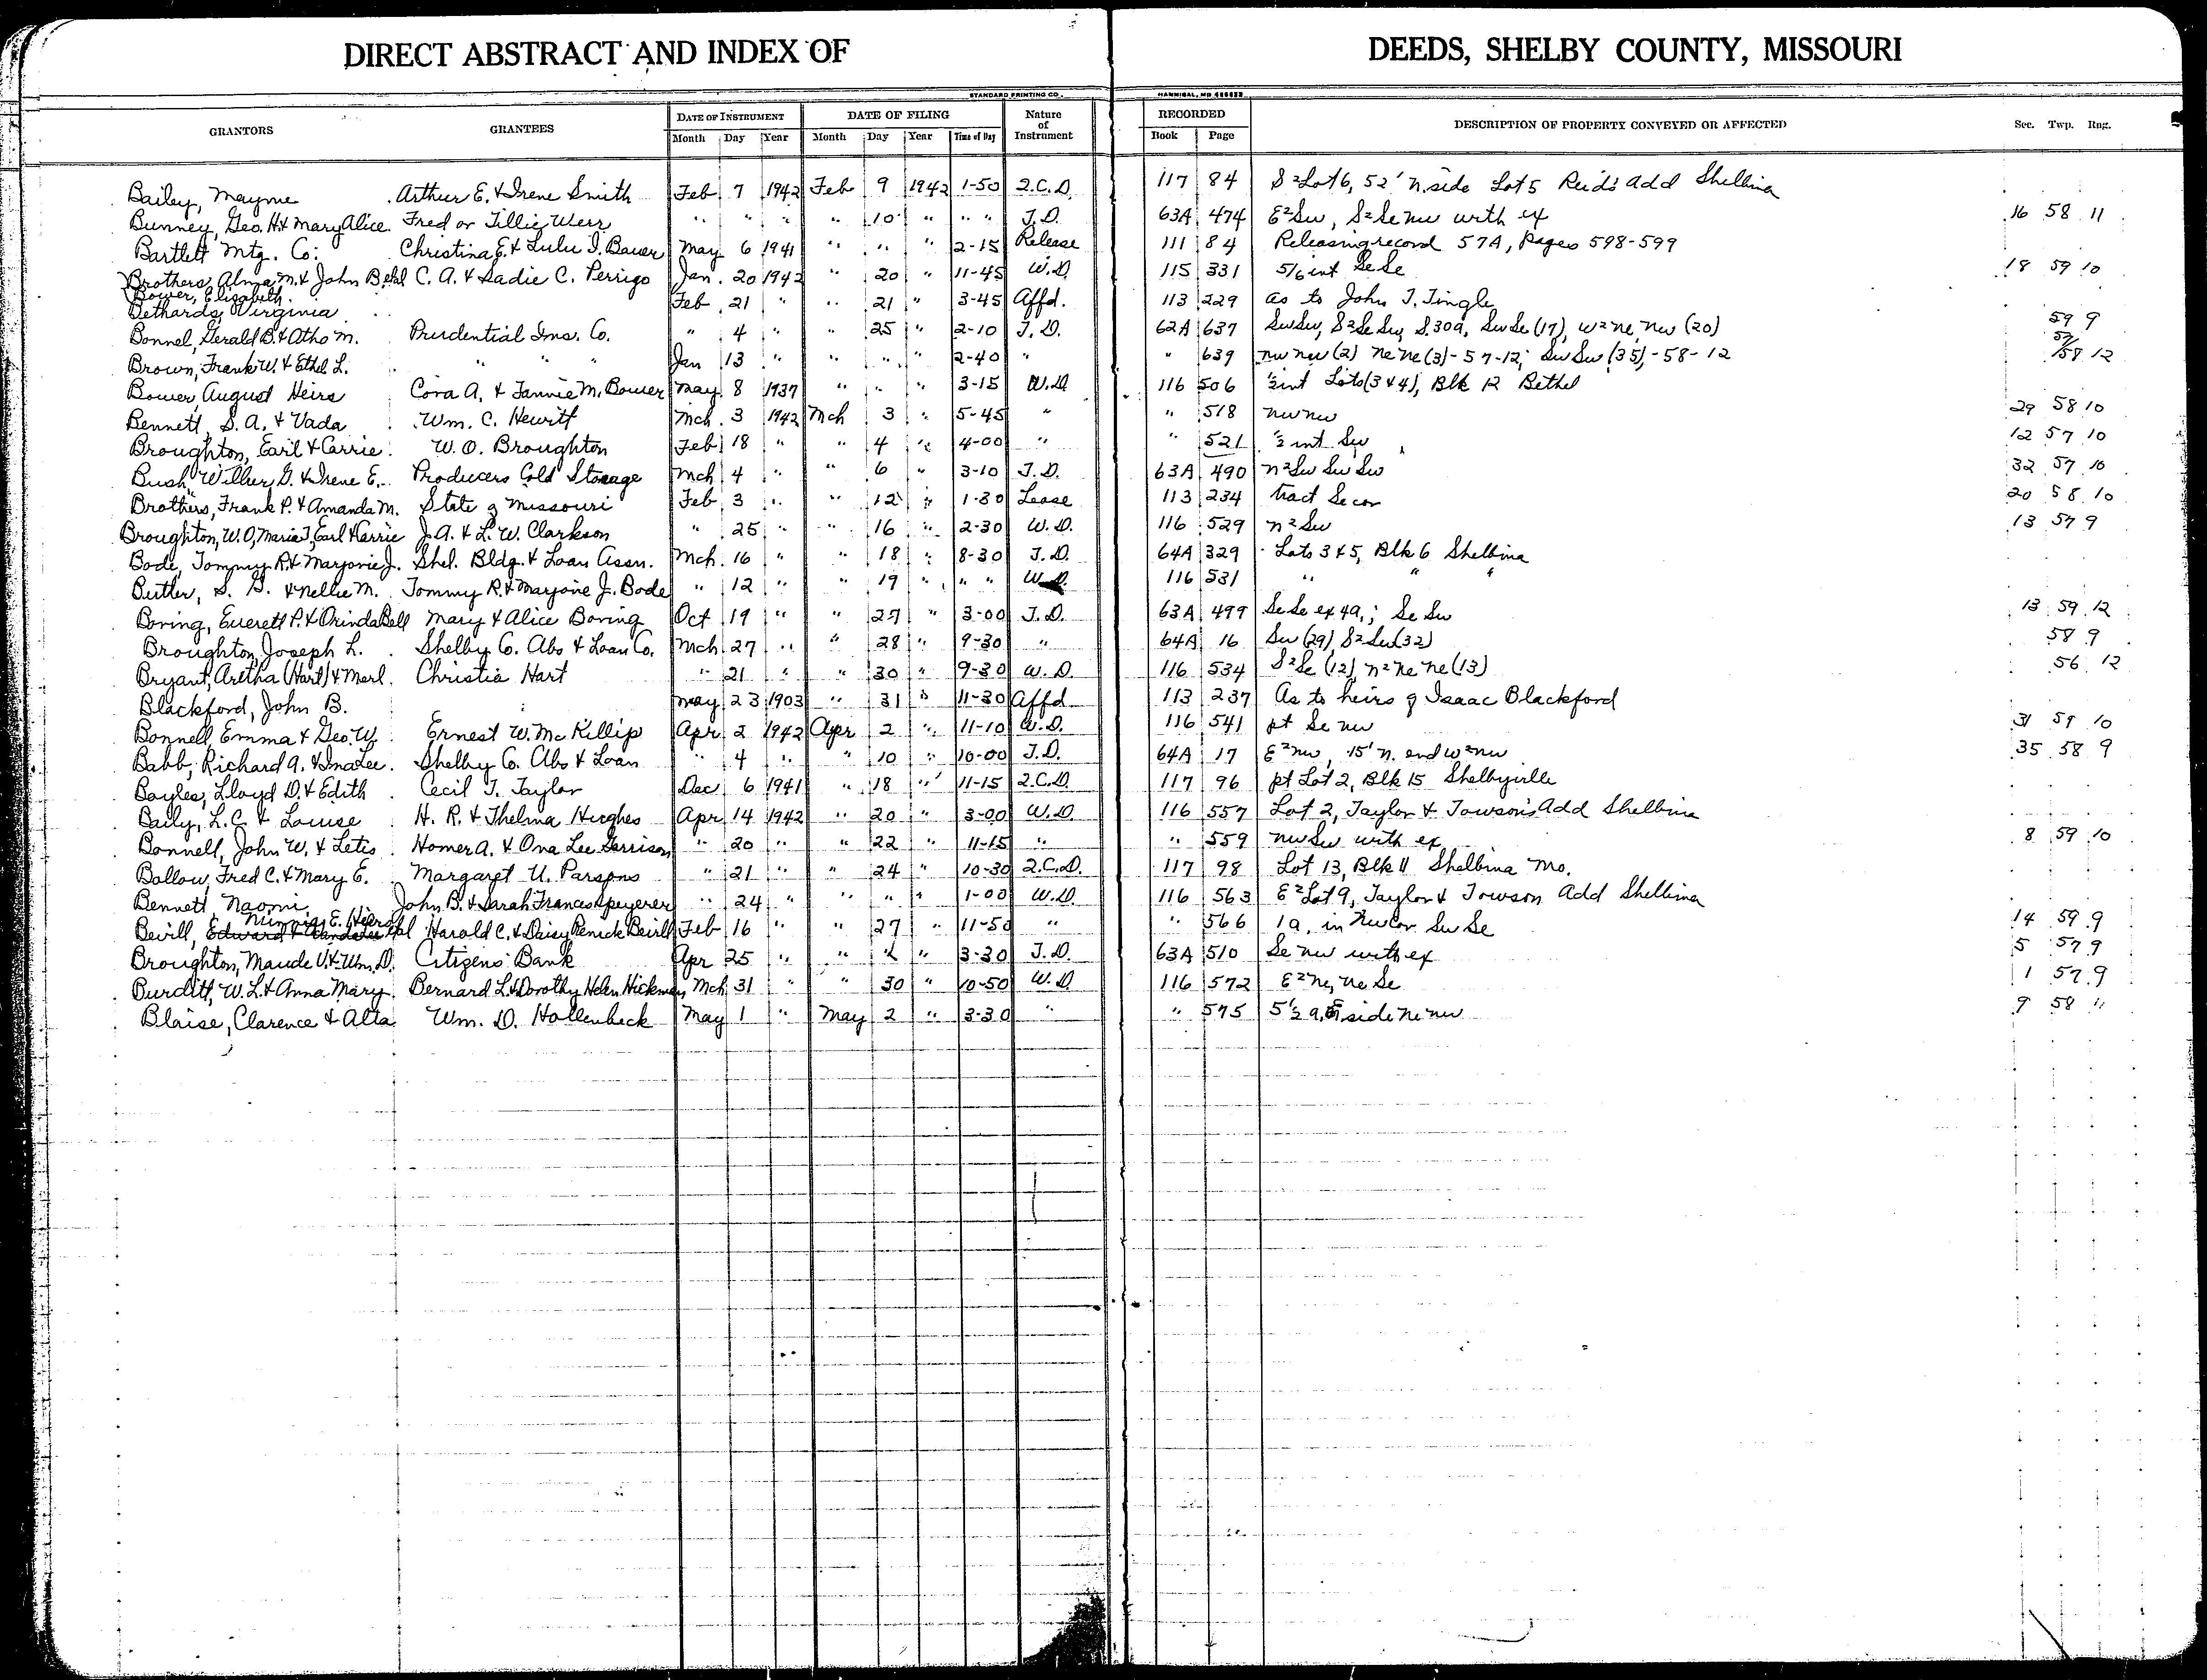 DIRECT ABSTRACT AND INDEX OF DEEDS, SHELBY COUNTY, MISSOURI
STANDARD PRINTING CO. HANNIBAL, MO
GRANTORS GRANTEES DATE OF INSTRUMENT DATE OF FILING Nature of Instrument RECORDED DESCRIPTION OF PROPERTY CONVEYED OR AFFECTED Sec. Twp. Rng.
Month Day Year Month Day Year Time of Day Book Page
Bailey, Mayme Arthur E. & Irene Smith Feb 7 1942 Feb 9 1942 1-50 2.C.D. 117 84 S2 Lot 6, 52' N. side Lot 5 Reid's Add Shelbina
Bunney, Geo. H. & Mary Alice Fred or Tillie Werr " " " " 10 " " " T.D. 63A 474 E2 Sw, S2 Se nw with ex 16 58 11
Bartlett Mtg. Co. Christina E. & Lulu I. Bauer May 6 1941 " " " 2-15 Release 111 84 Releasing record 57A, Pages 598-599
Brothers, Alma M. & John B. etal C. A. & Sadie C. Perrigo Jan. 20 1942 " 20 " 11-45 W.D. 115 331 5/6 int Se Se 18 59 10
Bower, Elizabeth
Bethards, Virginia Feb 21 " " 21 " 3-45 Affd. 113 229 as to John T. Tingle
Bonnel, Gerald B. & Atho M. Prudential Ins. Co. " 4 " " 25 " 2-10 T.D. 62A 637 Sw Sw, S2 Se Sw, S. 30a, Sw Se (17), W2 ne, nw (20) 59 9
Brown, Frank W. & Ethel L. " " " Jan 13 " " " " 2-40 " " 639 nw nw (2) ne ne (3)-57-12; Sw Sw (35)-58-12 57/58 12
Bower, August Heirs Cora A. & Fannie M. Bower May 8 1937 " " " 3-15 W.D. 116 506 ½ int Lots (3 & 4), Blk 12 Bethel
Bennett, S. A. & Vada Wm. C. Hewitt Mch. 3 1942 Mch 3 " 5-45 " " 518 nw nw 29 58 10
Broughton, Earl & Carrie W. O. Broughton Feb 18 " " 4 " 4-00 " " 521 ½ int Sw 12 57 10
Bush, Wilber G. & Irene E. Producers Cold Storage Mch 4 " " 6 " 3-10 T.D. 63A 490 n2 Sw Sw Sw 32 57 10
Brothers, Frank P. & Amanda M. State of Missouri Feb 3 " " 12 " 1-30 Lease 113 234 tract Se cor 20 58 10
Broughton, W. O, Marie T, Earl & Carrie J. A. & L. W. Clarkson " 25 " " 16 " 2-30 W.D. 116 529 n2 Sw 13 57 9
Bode, Tommy R. & Marjorie J. Shel. Bldg. & Loan Assn. Mch. 16 " " 18 " 8-30 T.D. 64A 329 Lots 3 & 5, Blk 6 Shelbina
Butler, S. G. & Nellie M. Tommy R. & Marjorie J. Bode " 12 " " 19 " " " W.D. 116 531 " " "
Boring, Everett P. & Orinda Bell Mary & Alice Boring Oct 19 " " 27 " 3-00 T.D. 63A 499 Se Se ex 4a,; Se Sw 13 59 12
Broughton, Joseph L. Shelby Co. Abs & Loan Co. Mch 27 " " 28 " 9-30 " 64A 16 Sw (29), S2 Sw (32) 58 9
Bryant, Aretha (Hart) & Merl Christia Hart " 21 " " 30 " 9-30 W.D. 116 534 S2 Se (12), n2 ne ne (13) 56 12
Blackford, John B. May 23 1903 " 31 " 11-30 Affd 113 237 As to heirs of Isaac Blackford
Bonnell, Emma & Geo. W. Ernest W. McKillip Apr 2 1942 Apr 2 " 11-10 W.D. 116 541 pt Se nw 31 59 10
Babb, Richard A. & Ina Lee Shelby Co. Abs & Loan " 4 " " 10 " 10-00 T.D. 64A 17 E2 nw, 15' n. end w2 nw 35 58 9
Bayles, Lloyd D. & Edith Cecil T. Taylor Dec 6 1941 " 18 " 11-15 2.C.D. 117 96 pt Lot 2, Blk 15 Shelbyville
Baily, L. C. & Louise H. R. & Thelma Hughes Apr 14 1942 " 20 " 3-00 W.D. 116 557 Lot 2, Taylor & Towson's Add Shelbina
Bonnell, John W. & Letis Homer A. & Ona Lee Garrison " 20 " " 22 " 11-15 " " 559 nw Sw with ex 8 59 10
Ballow, Fred C. & Mary E. Margaret U. Parsons " 21 " " 24 " 10-30 2.C.D. 117 98 Lot 13, Blk 11 Shelbina Mo.
Bennett Naomi John B. & Sarah Frances Speyerer " 24 " " " " 1-00 W.D. 116 563 E2 Lot 9, Taylor & Towson Add Shelbina
Bevill, Minnie E. Heirs etal Harold C. & Daisy Renick Beirll Feb 16 " " 27 " 11-50 " " 566 1a. in nw cor Sw Se 14 59 9
Broughton, Maude V. & Wm. D. Citizens Bank Apr 25 " " " " 3-30 T.D. 63A 510 Se nw with ex 5 57 9
Burditt, W. L. & Anna Mary Bernard L. & Dorothy Helen Hickman Mch 31 " " 30 " 10-50 W.D. 116 572 E2 ne, ne Se 1 57 9
Blaise, Clarence & Alta Wm. D. Hollenbeck May 1 " May 2 " 3-30 " " 575 5½ a, side ne nw 9 58 11